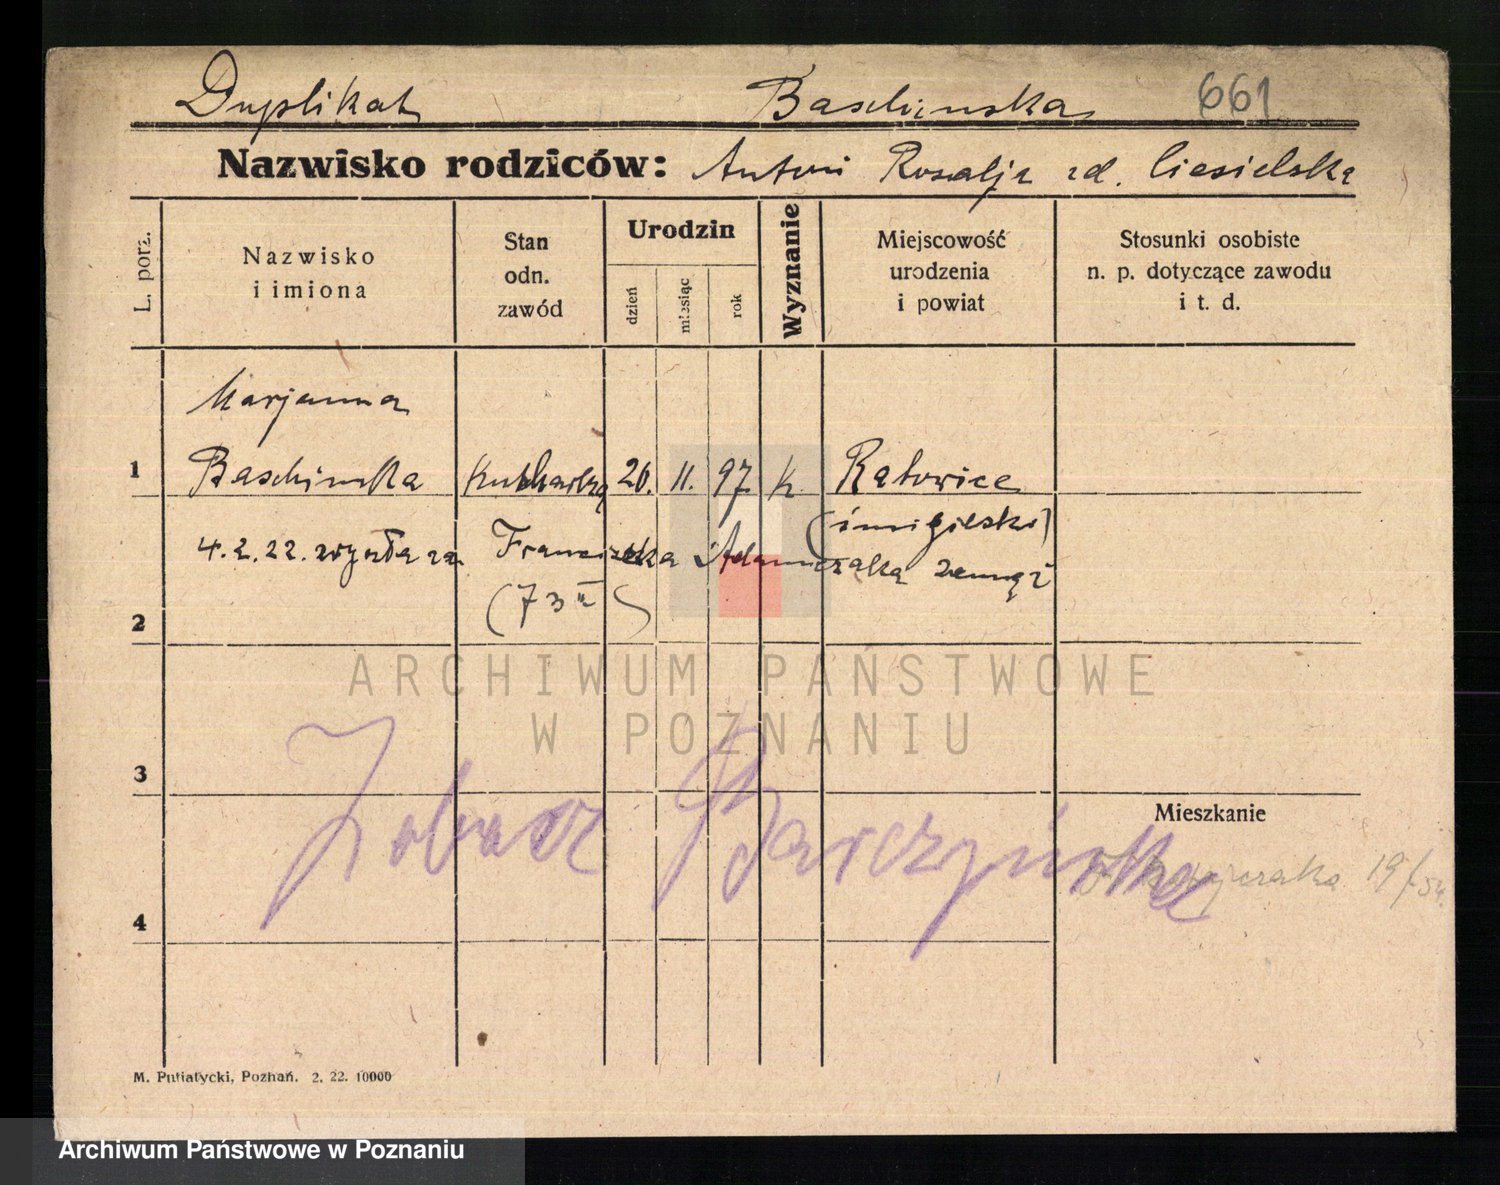 Duplikat Baschinska 661
Nazwisko rodziców: Antoni Rosalja zd. Ciesielska
L. porz.
Nazwisko
i imiona
Stan
odn.
zawód
Urodzin
dzień
miesiąc
rok
Wyznanie
Miejscowość
urodzenia
i powiat
Stosunki osobiste
n. p. dotyczące zawodu
i t. d.
Marjanna
1 Baschinska Kucharka 26. 11. 97. K. Ratowice
(śmigielski)
4.2.22. wyszła za Franciszka Adamczaka zamąż
(73 )
2
ARCHIWUM PAŃSTWOWE
W POZNANIU
3
Zobacz Barczyńska
Mieszkanie
19/
4
M. Putiatycki, Poznań. 2. 22. 10000
Archiwum Państwowe w Poznaniu